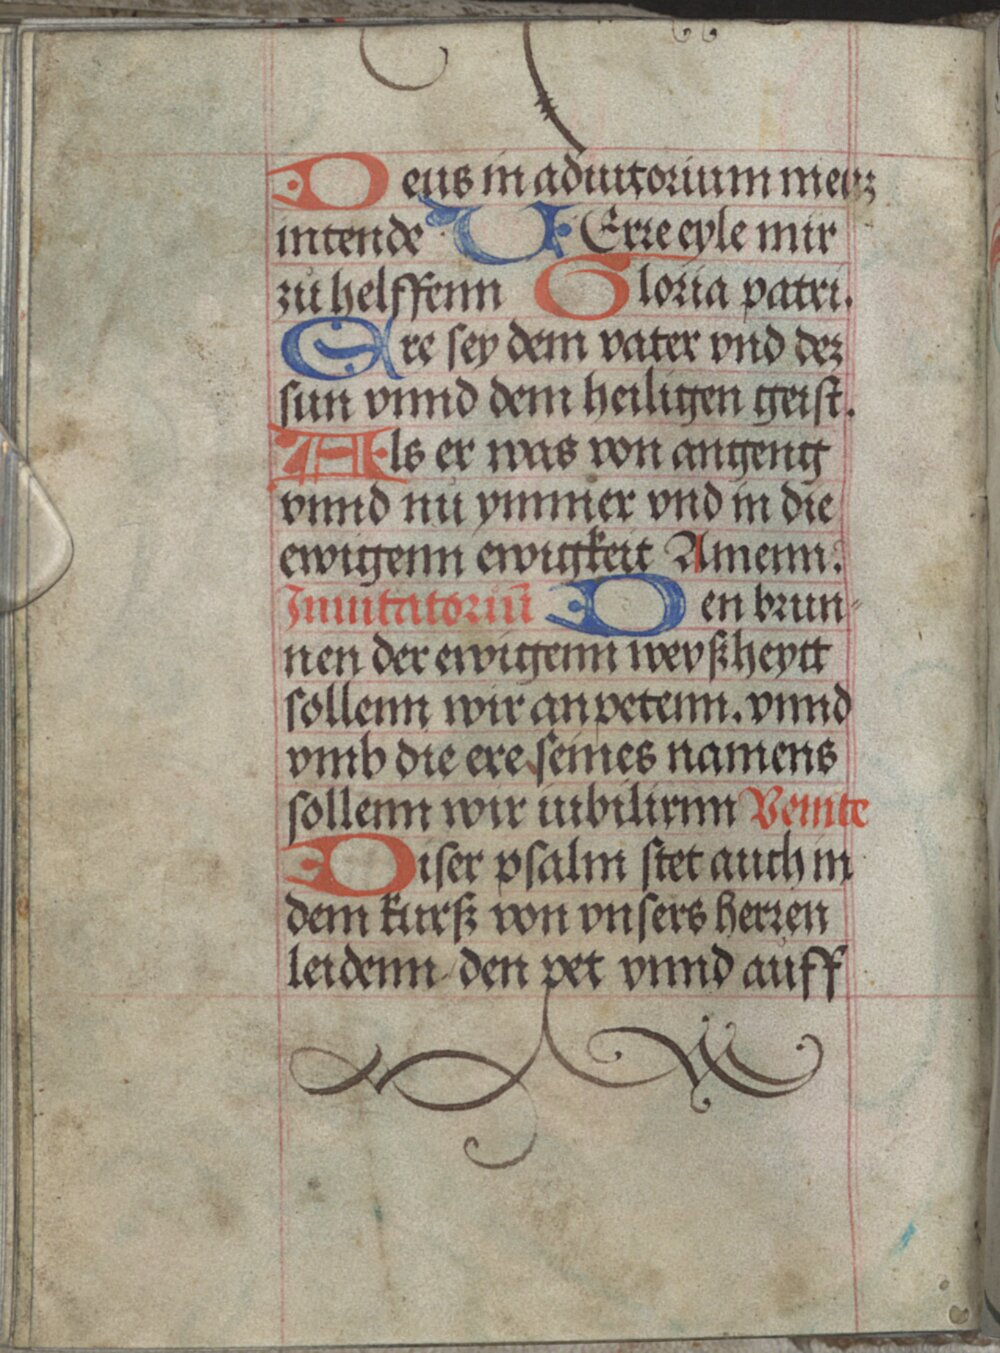 Deus in adiutorium meuʒ
intende HErre eyle mir
zu helffenn Gloria patri.
Ere sey dem vater vnd deʒ
sun vnnd dem heiligen geist.
Als er was von angeng
vnnd nu ymmer vnd in die
ewigenn ewigkeit Amenn.
Inuitatoriū Den brun-
nen der ewigenn weyßheytt
sollenn wir anpetenn. vnnd
vmb die ere seines namens
sollenn wir iubilirnn Venite
Diser psalm stet auch in
dem kurß von vnsers herren
leidenn den pet vnnd auff